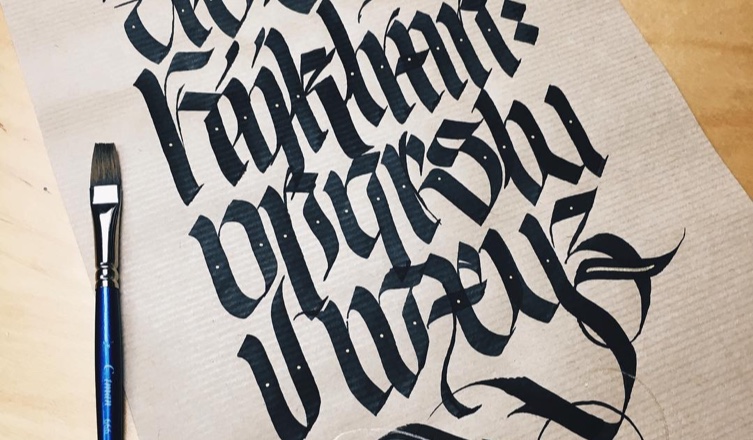 hijklmn:
opqrstu
vwxyz